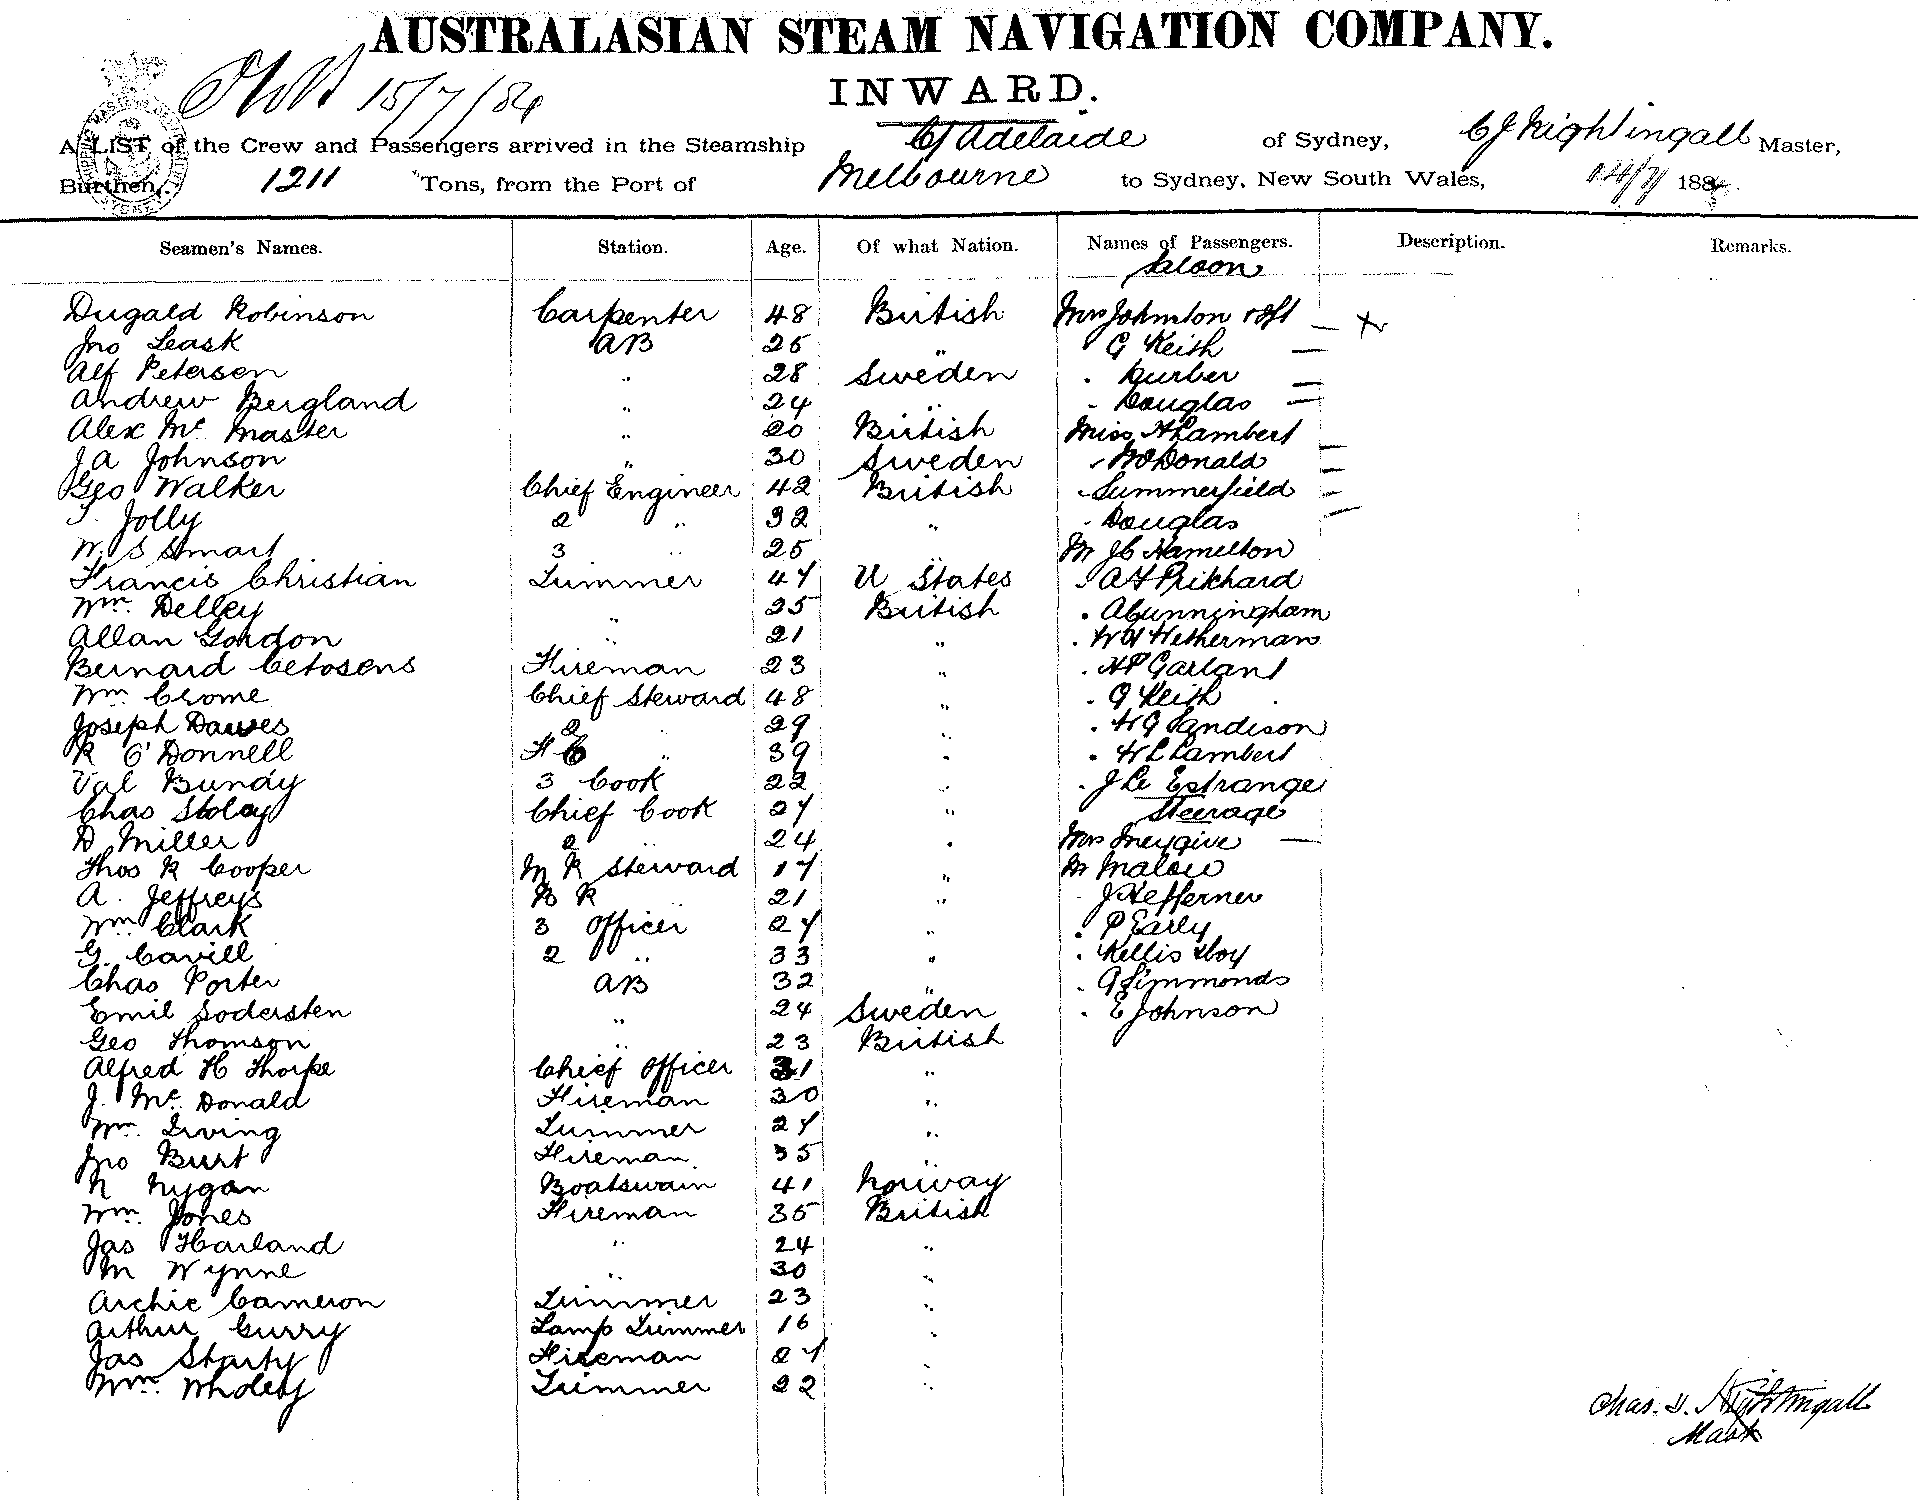 AUSTRALASIAN STEAM NAVIGATION COMPANY.
15/7/84 INWARD.
A LIST of the Crew and Passengers arrived in the Steamship C of Adelaide of Sydney, C J Nightingall Master,
Burthen, 1211 Tons, from the Port of Melbourne to Sydney, New South Wales, 14/7/ 1884.
Seamen's Names. Station. Age. Of what Nation. Names of Passengers. Description. Remarks.
Saloon
Dugald Robinson Carpenter 48 British Mrs Johnston
Jno Leask AB 25 " G Keith
Alf Petersen " 28 Sweden " Durber
Andrew Bergland " 24 " " Douglas
Alex Mc Master " 20 British Miss H Lambert
J A Johnson " 30 Sweden " McDonald
Geo Walker Chief Engineer 42 British " Summerfield
T. Jolly 2 " 32 " " Douglas
W. S Smart 3 " 25 " Mr J C Hamilton
Francis Christian Trimmer 47 U States " A H Prikhard
Wm. Delley " 25 British " A Cunningham
Allan Gordon " 21 " " W H Wetherman
Bernard Cetosens Fireman 23 " " H P Garland
Wm Crome Chief Steward 48 " " G Keith
Joseph Dawes 2 " 29 " " W G Sandison
R O'Donnell F C " 39 " " W L Lambert
Val Bundy 3 Cook 22 " " J Le Estrange
Chas Stoley Chief Cook 27 " Steerage
D Miller 2 " 24 " Mrs
Thos R Cooper M R Steward 17 " Mr Malow
A. Jeffreys B R " 21 " " J Hefferner
Wm Clark 3 Officer 27 " " P Early
G. Cavill 2 " 33 " " Kellis & boy
Chas Porter AB 32 " " G Simmonds
Emil Sodersten " 24 Sweden " E Johnson
Geo Thomson " 23 British
Alfred H Thorpe Chief Officer 31 "
J. Mc Donald Fireman 30 "
Wm. Irving Trimmer 27 "
Jno Burt Fireman 35 "
N Nygan Boatswain 41 Norway
Wm. Jones Fireman 35 British
Jas Harland " 24 "
M Wynne " 30 "
Archie Cameron Trimmer 23 "
Arthur Curry Lamp Trimmer 16 "
Jas Starty Fireman 27 "
Wm. Wholey Trimmer 22 "
Chas. J. Nightingall
Mast